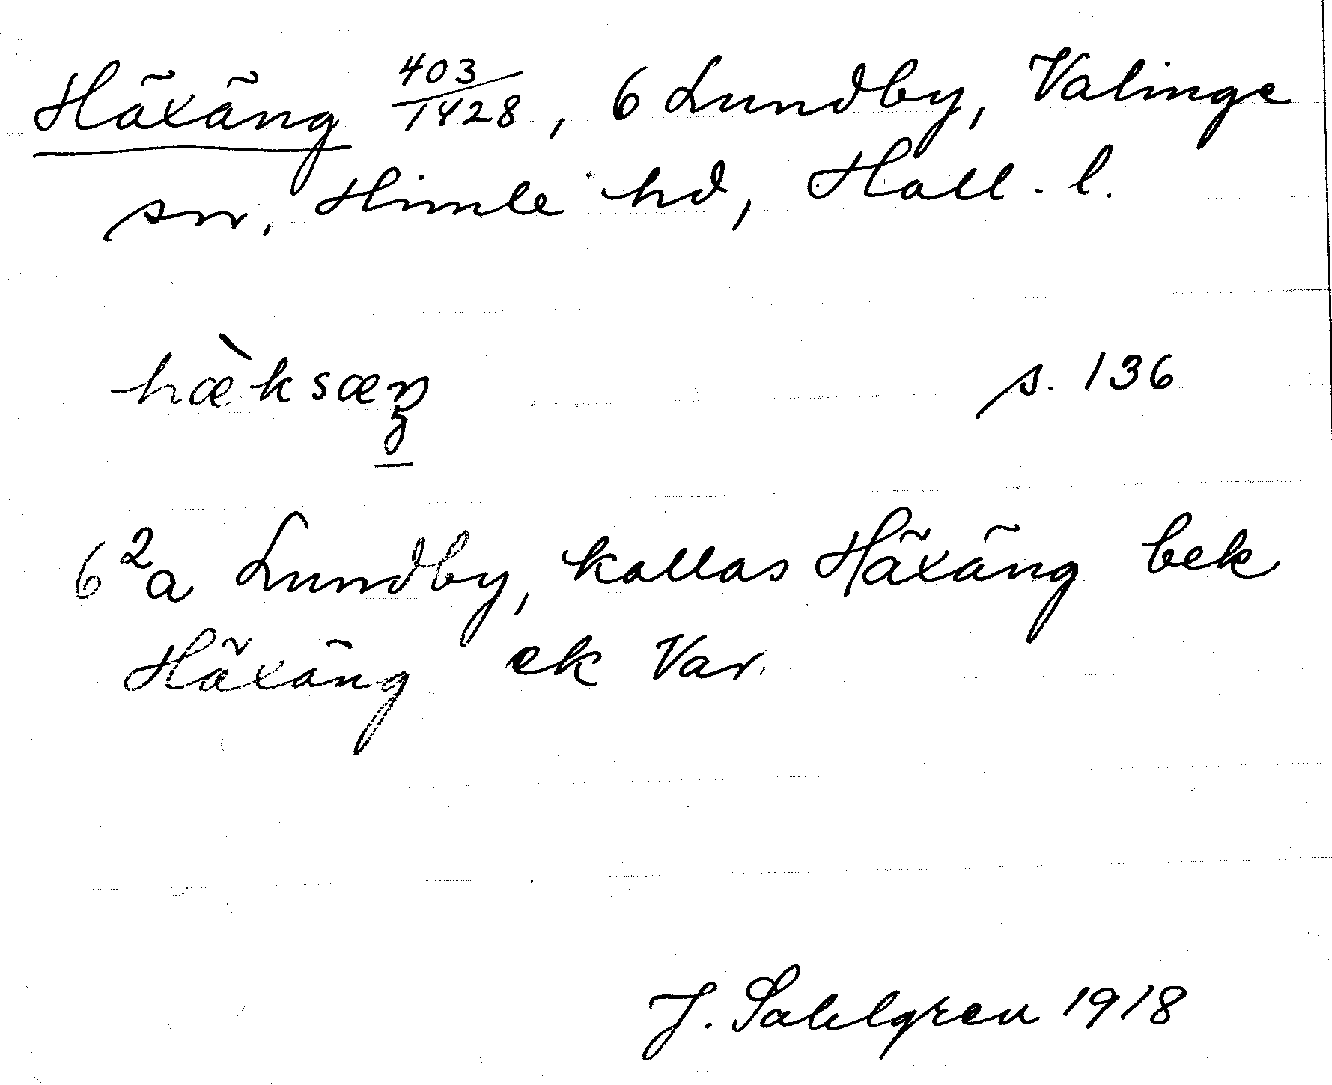 Häxäng 403/1428, 6 Lundby, Valinge
sn, Himle hd, Hall. l.
hæ̀ksæŋ s. 136
6²a Lundby, kallas Häxäng bek
Häxäng ek Var.
J. Sahlgren 1918